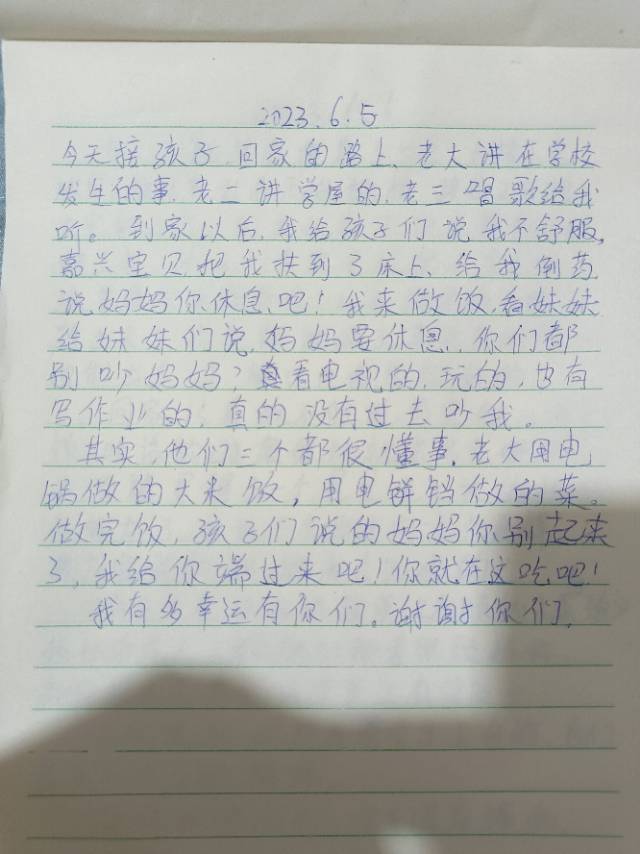 2023.6.5
今天接孩子回家的路上、老大讲在学校
发生的事.老二讲学屋的.老三唱歌给我
听。到家以后.我给孩子们说我不舒服,
嘉兴宝贝.把我扶到了床上、给我倒药.
说妈妈你休息吧!我来做饭,看妹妹
给妹妹们说.妈妈要休息.你们都
别吵妈妈?看电视的.玩的,也有
写作业的,真的没有过去吵我。
其实,他们三个都很懂事.老大用电
锅做的大米饭,用电饼铛做的菜。
做完饭,孩子们说的妈妈你别起来
了,我给你端过来吧!你就在这吃吧!
我有多幸运有你们。谢谢你们.